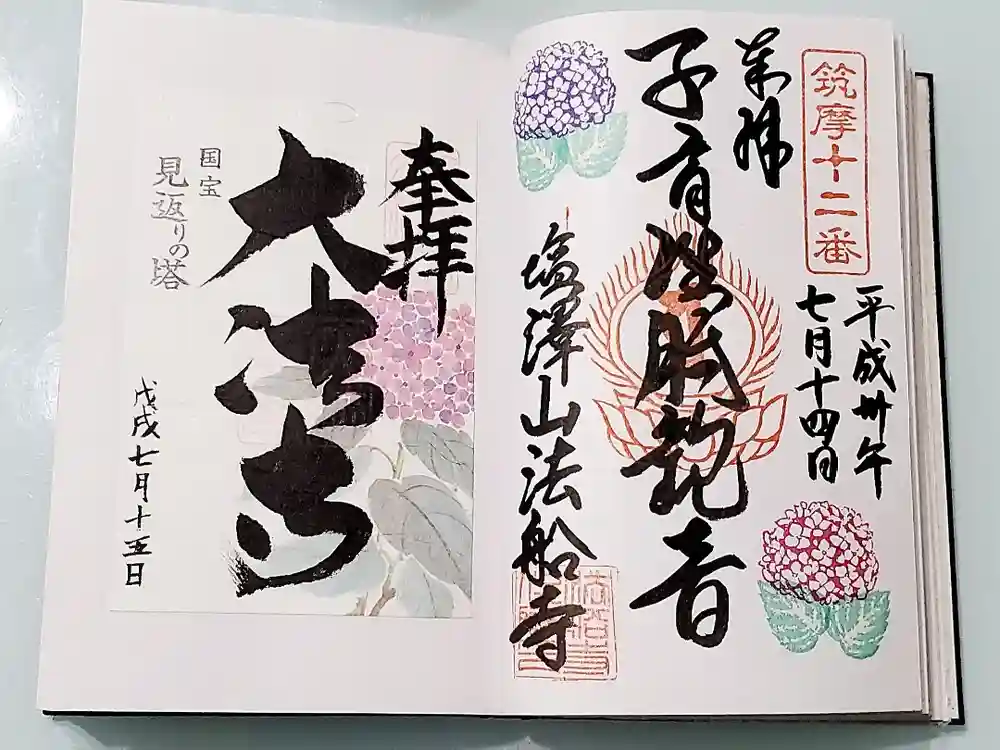 筑摩十二番
平成卅年
七月十四日
奉拝
子育准胝観音
塩澤山法船寺
奉拝
大法寺
国宝
見返りの塔
戊戌七月十五日